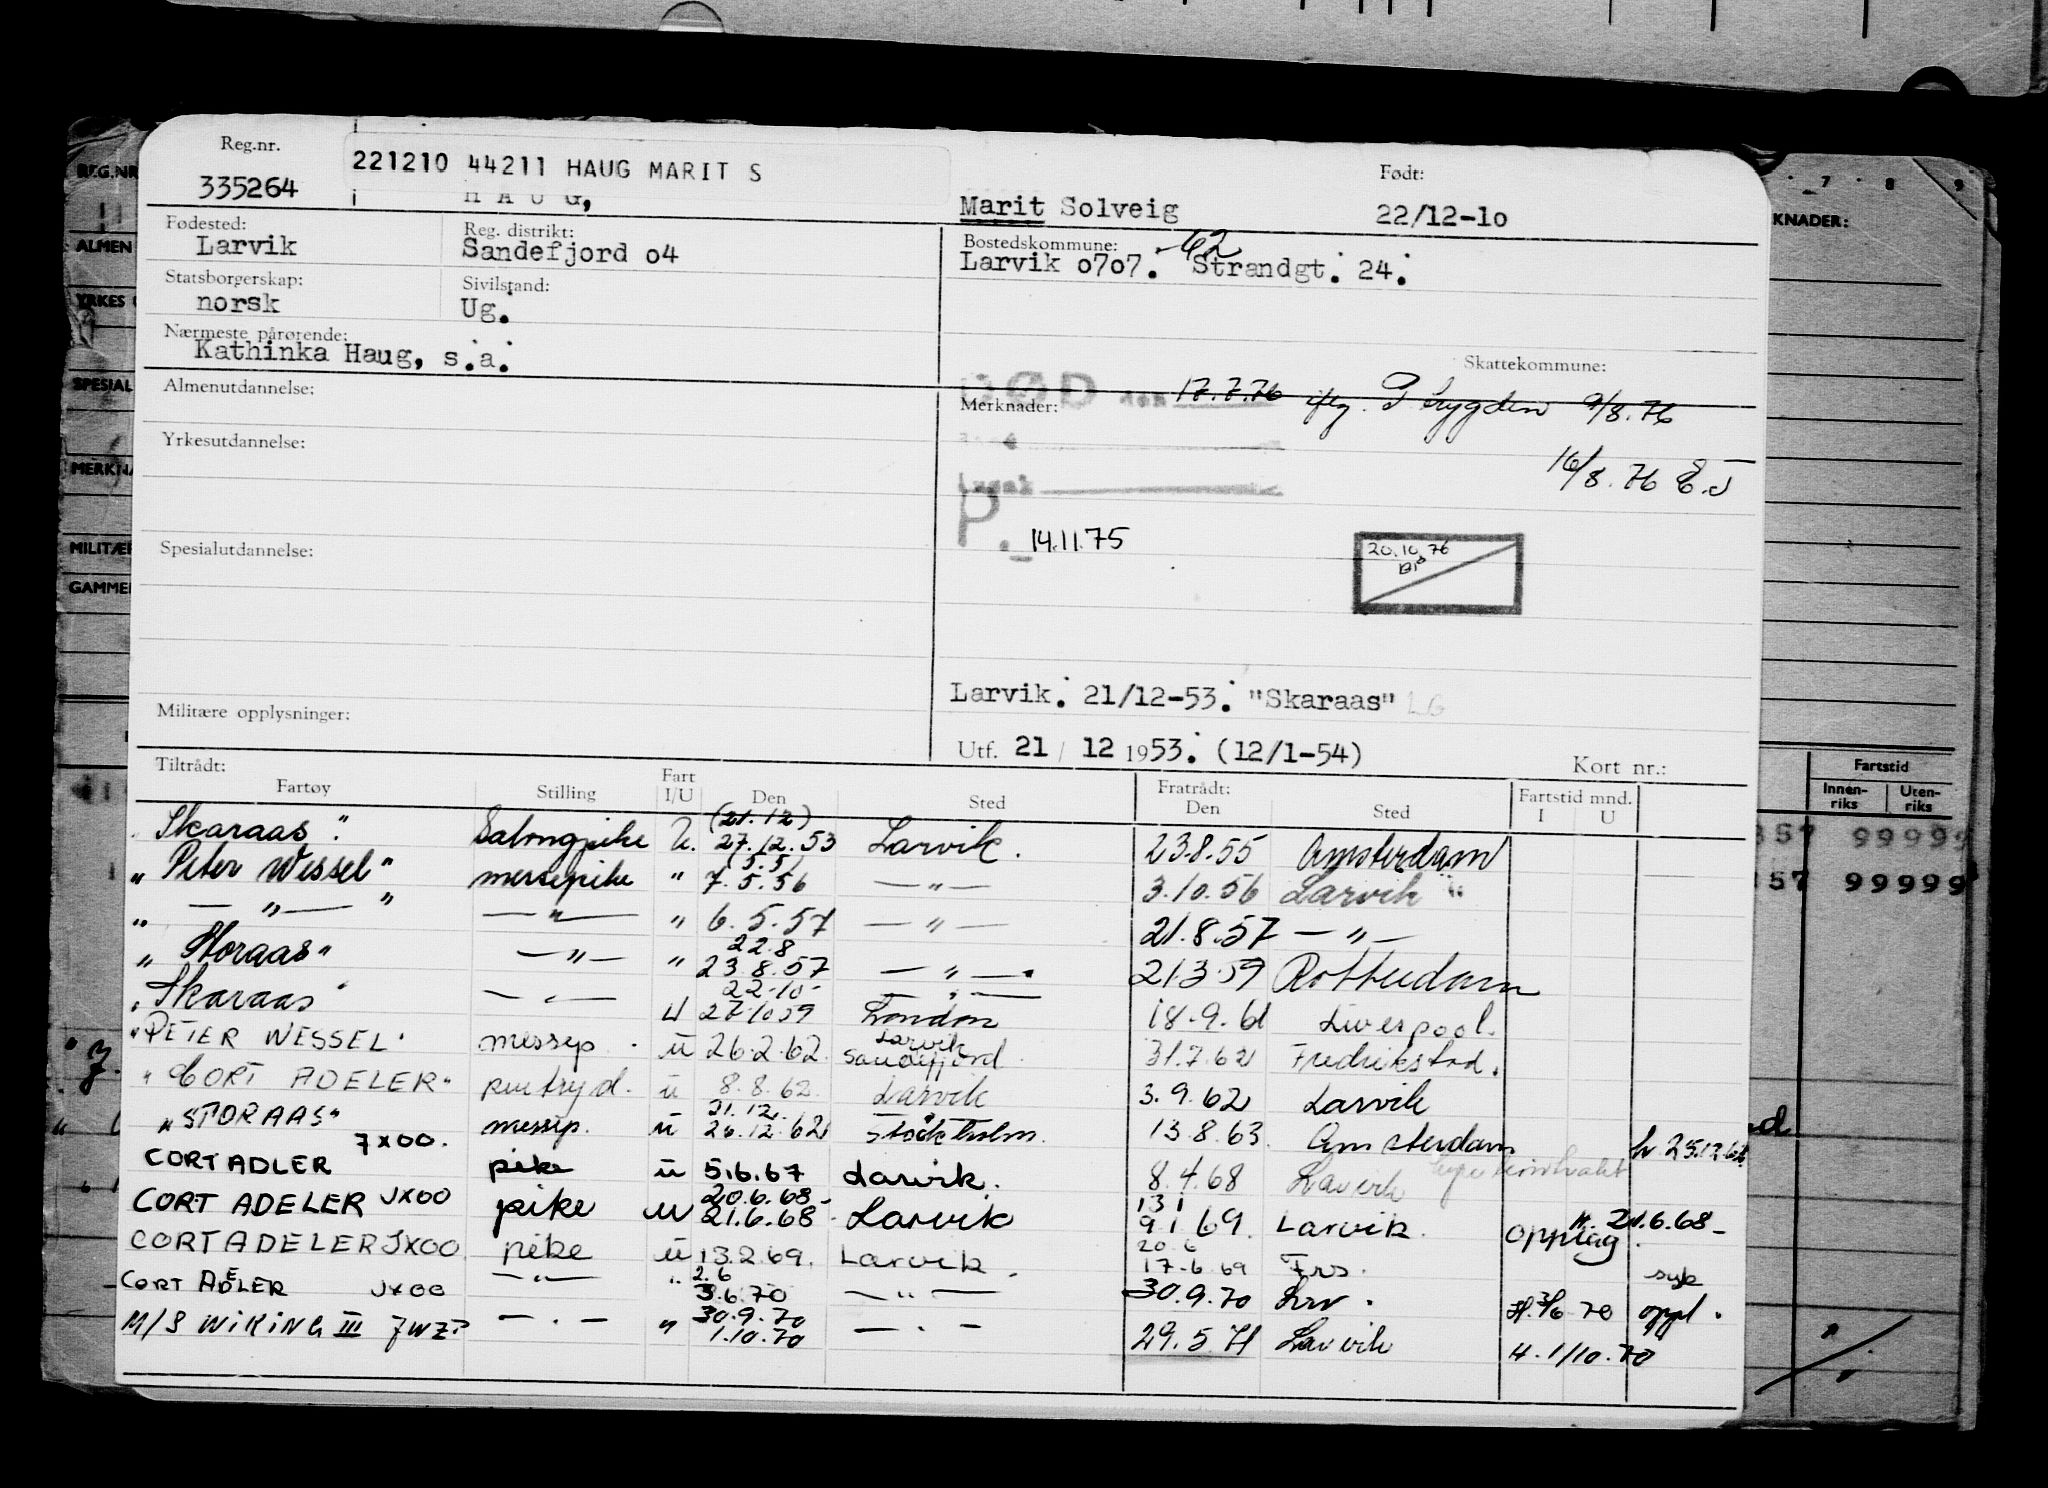 Reg.nr.
335264
221210 44211 HAUG MARIT S
HAUG,
Marit Solveig
Født:
22/12-10
Fødested:
Larvik
Reg. distrikt:
Sandefjord o4
Bostedskommune: 62
Larvik o7o7. Strandgt. 24.
Statsborgerskap:
norsk
Sivilstand:
Ug.
Nærmeste pårørende:
Kathinka Haug, s.a.
Skattekommune:
Almenutdannelse:
Merknader:
DØD den 17.7.76 iflg. trygden 9/8.76
Yrkesutdannelse:
16/8.76 E.J
P. 14.11.75
20.10.76
Spesialutdannelse:
Larvik. 21/12-53. "Skaraas" LG
Militære opplysninger:
Utf. 21 / 12 1953. (12/1-54)
Kort nr.:
Tiltrådt:
Fartøy Stilling Fart I/U Den Sted Fratrådt: Den Sted Fartstid mnd. I U
"Skaraas". Salongpike U. (21.12) 27.12.53 Larvik. 23.8.55 Amsterdam
"Peter Wessel" messepike " (5.5) 7.5.56 — " — 3.10.56 Larvik
" — " — " — " — " 6.5.57 — " — 21.8.57 — " —
"Storaas" — " — " 22.8 23.8.57 — " — 21.3.59 Rotterdam
"Skaraas" — " — U 22.10 27.10.59 — " — London 18.9.61 Liverpool.
"PETER WESSEL" messep. U 26.2.62. Larvik Sandefjord 31.7.62 Fredrikstad.
"CORT ADELER" pentryd. U 8.8.62. Larvik 3.9.62 Larvik
"STORAAS" messep. U 21.12. 26.12.62 Stockholm. 13.8.63. Amsterdam
CORT ADLER JXOO. pike U 5.6.67 Larvik. 8.4.68 Larvik
CORT ADELER JXOO pike U 20.6.68 21.6.68 Larvik 13 1 9.1.69. Larvik. opplag H. 21.6.68
CORT ADELER JXOO pike U 13.2.69. Larvik. 20.6 17.6.69 Frs. syk
CORT ADELER JXOO — " — " 2.6 3.6.70 — " — 30.9.70 Lrv. H. 3/6 70 oppl.
M/S WIKING III JWZP — " — " 30.9.70 1.10.70 — " — 29.5.71 Larvik H. 1/10.70
REG.NR
ALMEN
YRKES
SPESIAL
MERKNA
MILITÆR
GAMMEL
7 8 9
KNADER:
Fartstid
Innen-riks Uten-riks
357 99999
357 99999